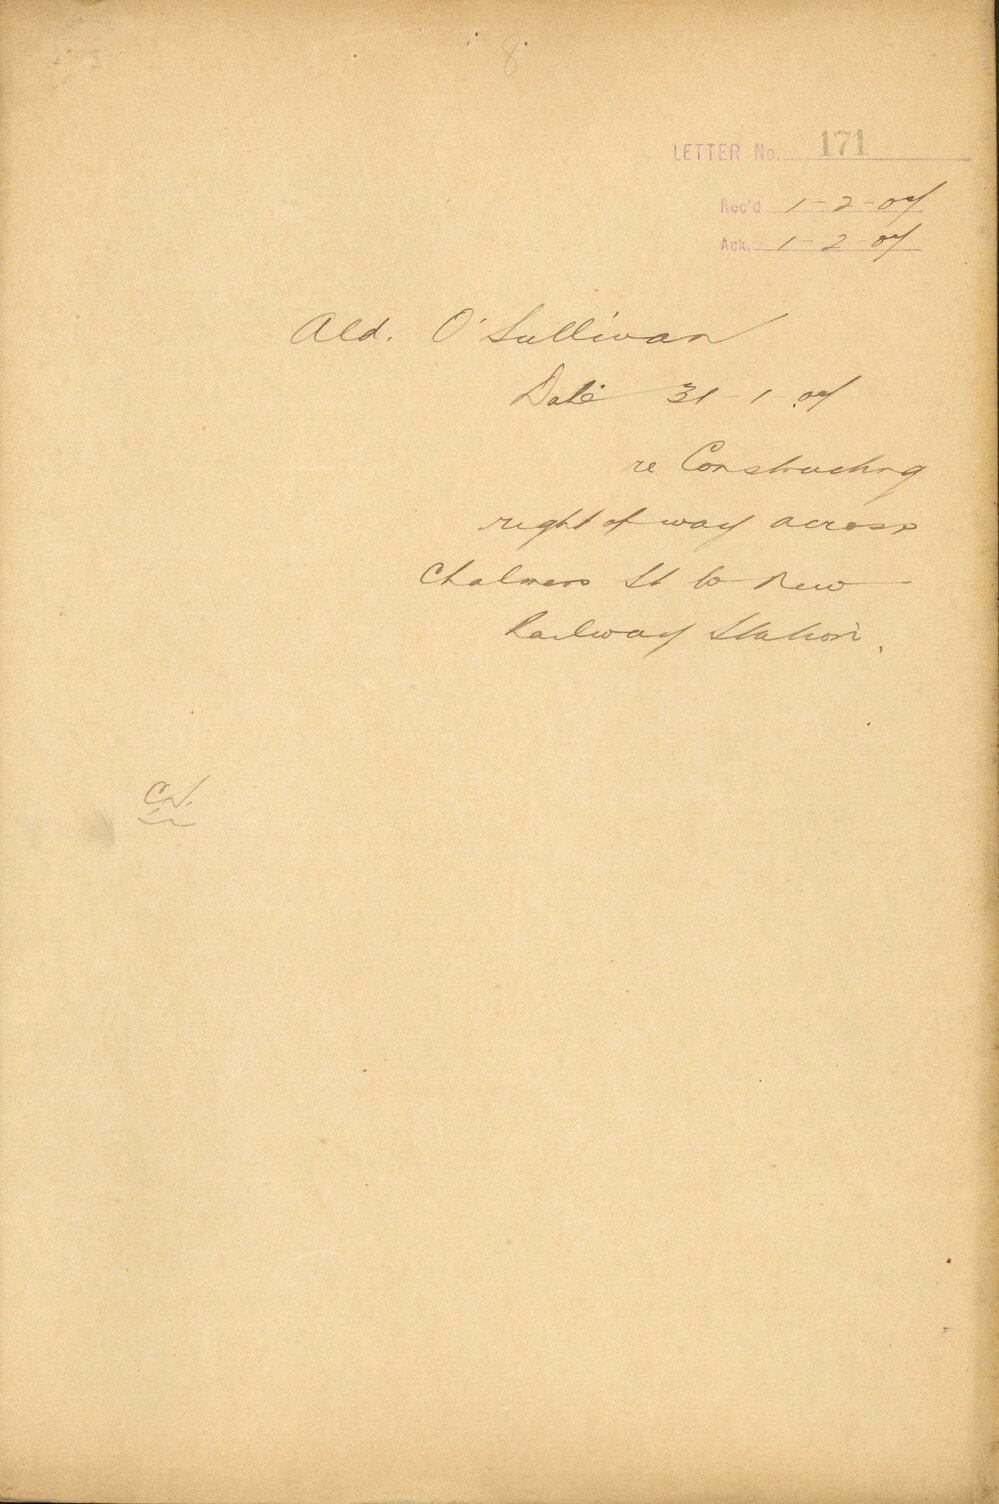 8
LETTER No. 171
Rec'd 1-2-07
Ack. 1-2-07
Ald. O'Sullivan
Date 31-1-07
re Constructing
right of way across
Chalmers St to New
Railway Station.